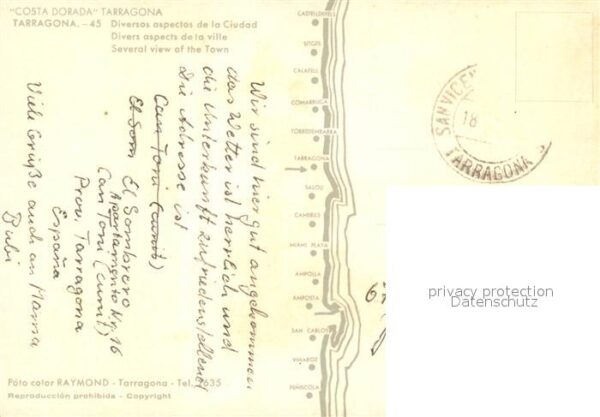 "COSTA DORADA" TARRAGONA
TARRAGONA. - 45 Diversos aspectos de la Ciudad
Divers aspects de la ville
Several view of the Town
Wir sind hier gut angekommen
das Wetter ist herrlich und
die Unterkunft zufriedenstellend
die Adresse ist
Can Toni (cunit)
El Som
El Sombrero
Apartamento Nr. 16
Can Toni (cunit)
Prov. Tarragona
España
Viele Grüße auch an Mama
Bubi
CASTELLDEFELS
SITGES
CALAFELL
COMARRUGA
TORREDEMBARRA
TARRAGONA
SALOU
CAMBRILS
MIAMI PLAYA
AMPOLLA
AMPOSTA
SAN CARLOS
VINAROZ
PEÑISCOLA
SAN VICE
18
TARRAGONA
privacy protection
Datenschutz
Foto color RAYMOND - Tarragona - Tel. 2635
Reproducción prohibida - Copyright